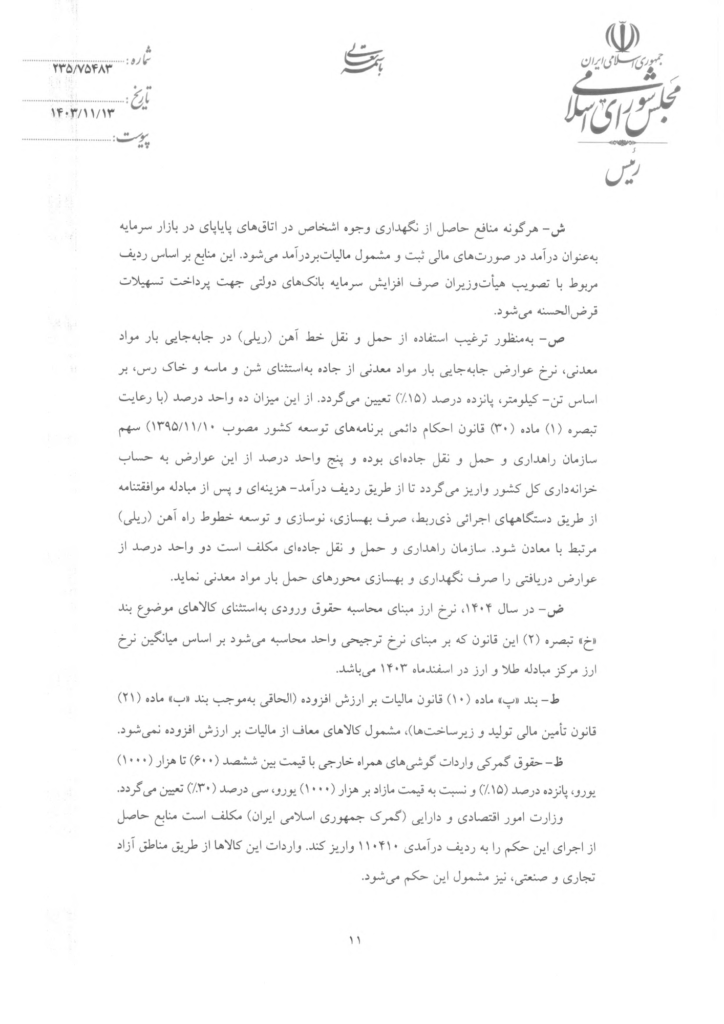 جمهوری اسلامی ایران
مجلس شورای اسلامی
رئیس
باسمه تعالی
شماره: ۲۳۵/۷۵۴۸۳
تاریخ: ۱۴۰۳/۱۱/۱۳
پیوست:
ش- هرگونه منافع حاصل از نگهداری وجوه اشخاص در اتاق‌های پایاپای در بازار سرمایه
به‌عنوان درآمد در صورت‌های مالی ثبت و مشمول مالیات‌بردرآمد می‌شود. این منابع بر اساس ردیف
مربوط با تصویب هیأت‌وزیران صرف افزایش سرمایه بانک‌های دولتی جهت پرداخت تسهیلات
قرض‌الحسنه می‌شود.
ص- به‌منظور ترغیب استفاده از حمل و نقل خط آهن (ریلی) در جابه‌جایی بار مواد
معدنی، نرخ عوارض جابه‌جایی بار مواد معدنی از جاده به‌استثنای شن و ماسه و خاک رس، بر
اساس تن- کیلومتر، پانزده درصد (۱۵٪) تعیین می‌گردد. از این میزان ده واحد درصد (با رعایت
تبصره (۱) ماده (۳۰) قانون احکام دائمی برنامه‌های توسعه کشور مصوب ۱۳۹۵/۱۱/۱۰) سهم
سازمان راهداری و حمل و نقل جاده‌ای بوده و پنج واحد درصد از این عوارض به حساب
خزانه‌داری کل کشور واریز می‌گردد تا از طریق ردیف درآمد- هزینه‌ای و پس از مبادله موافقتنامه
از طریق دستگاههای اجرائی ذی‌ربط، صرف بهسازی، نوسازی و توسعه خطوط راه آهن (ریلی)
مرتبط با معادن شود. سازمان راهداری و حمل و نقل جاده‌ای مکلف است دو واحد درصد از
عوارض دریافتی را صرف نگهداری و بهسازی محورهای حمل بار مواد معدنی نماید.
ض- در سال ۱۴۰۴، نرخ ارز مبنای محاسبه حقوق ورودی به‌استثنای کالاهای موضوع بند
«خ» تبصره (۲) این قانون که بر مبنای نرخ ترجیحی واحد محاسبه می‌شود بر اساس میانگین نرخ
ارز مرکز مبادله طلا و ارز در اسفندماه ۱۴۰۳ می‌باشد.
ط- بند «پ» ماده (۱۰) قانون مالیات بر ارزش افزوده (الحاقی به‌موجب بند «ب» ماده (۲۱)
قانون تأمین مالی تولید و زیرساخت‌ها)، مشمول کالاهای معاف از مالیات بر ارزش افزوده نمی‌شود.
ظ- حقوق گمرکی واردات گوشی‌های همراه خارجی با قیمت بین ششصد (۶۰۰) تا هزار (۱۰۰۰)
یورو، پانزده درصد (۱۵٪) و نسبت به قیمت مازاد بر هزار (۱۰۰۰) یورو، سی درصد (۳۰٪) تعیین می‌گردد.
وزارت امور اقتصادی و دارایی (گمرک جمهوری اسلامی ایران) مکلف است منابع حاصل
از اجرای این حکم را به ردیف درآمدی ۱۱۰۴۱۰ واریز کند. واردات این کالاها از طریق مناطق آزاد
تجاری و صنعتی، نیز مشمول این حکم می‌شود.
۱۱